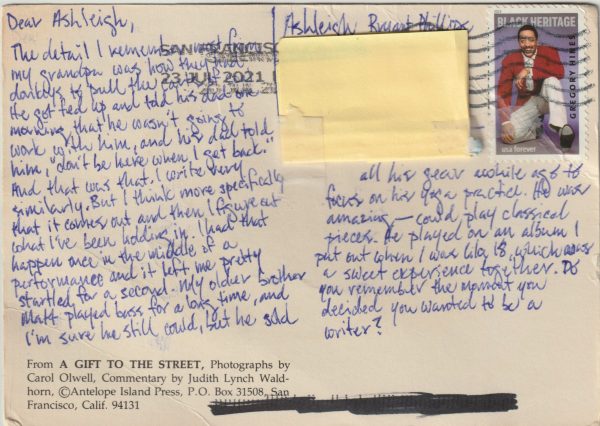 Dear Ashleigh,
The detail I remember most from
my grandpa was how they had
donkeys to pull the
He got fed up and told his dad one
morning that he wasn't going to
work with him, and his dad told
him, "don't be here when I get back."
And that was that. I write very
similarly. But I think more specifically
that it comes out and then I figure out
what I've been holding in. I had that
happen once in the middle of a
performance and it left me pretty
startled for a second. My older brother
Matt played bass for a long time, and
I'm sure he still could, but he sold
all his gear awhile ago to
focus on his yoga practice. He was
amazing – could play classical
pieces. He played on an album I
put out when I was like 18, which was
a sweet experience together. Do
you remember the moment you
decided you wanted to be a
writer?
Ashleigh Bryant Phillips
SAN FRANCISC
23 JUL 2021
BLACK HERITAGE
GREGORY HINES
usa forever
From A GIFT TO THE STREET, Photographs by
Carol Olwell, Commentary by Judith Lynch Wald-
horn, ©Antelope Island Press, P.O. Box 31508, San
Francisco, Calif. 94131